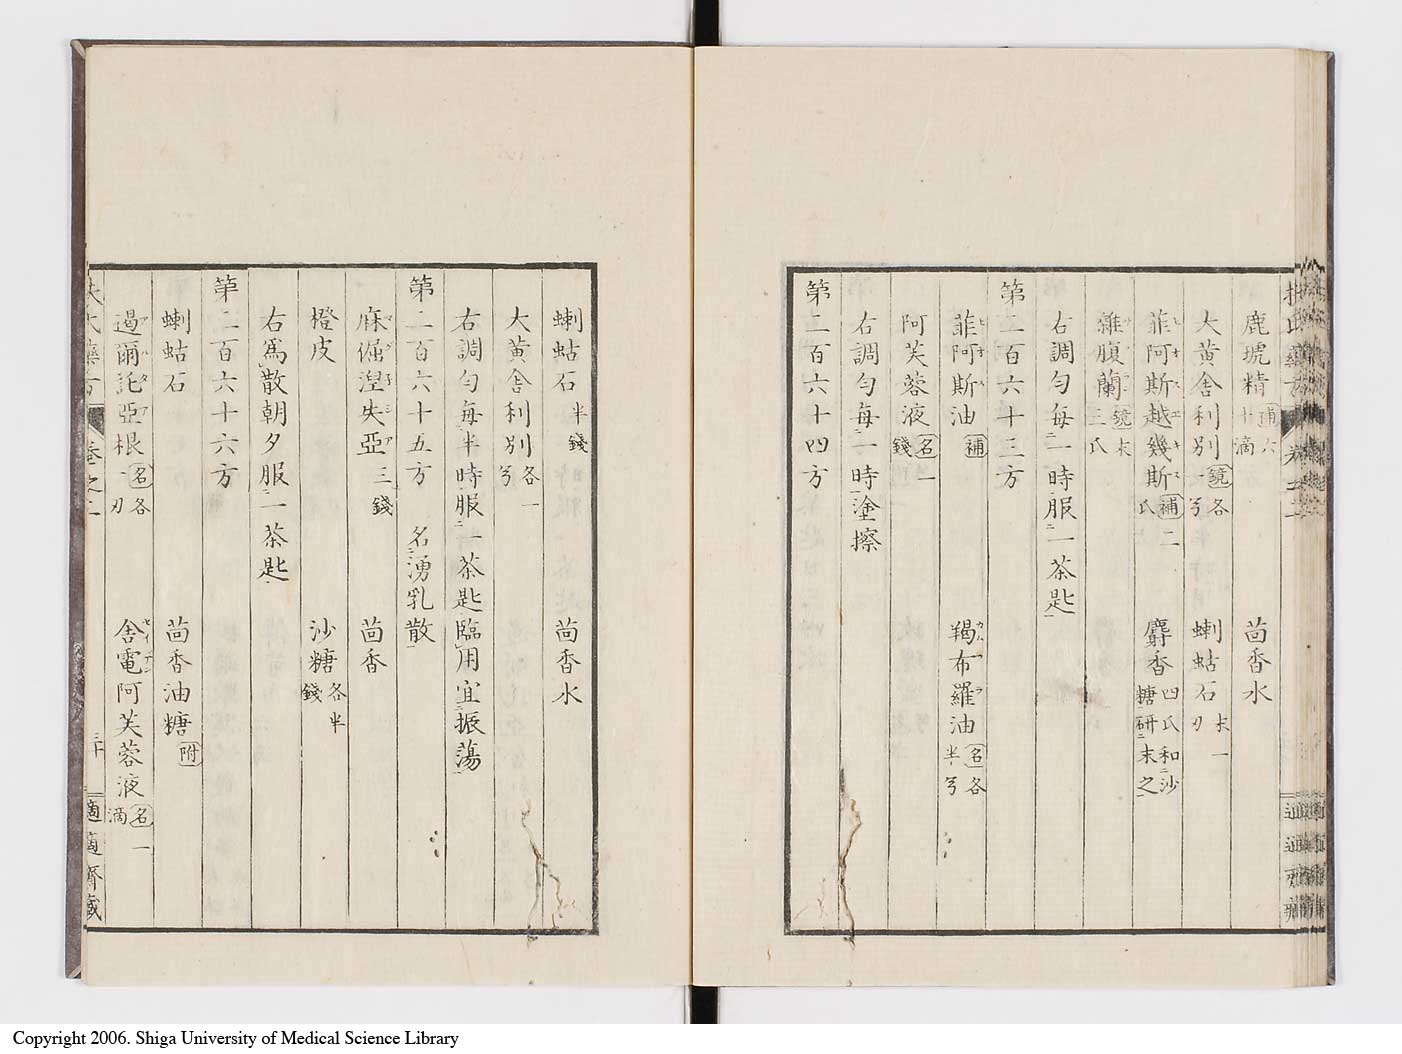 鹿琥精 補 六十滴 茴香水
大黄舎利別 鏡 各一兮 蝲蛄石 末一刃
菲阿斯越幾斯 補 二氏 麝香 四氏和沙糖研末之
雑腹蘭 鏡末三氏
右調匀毎一時服一茶匙
第二百六十三方
菲阿斯油 補 羯布羅油 名 各半兮
阿芙蓉液 名 一錢
右調匀毎一時塗擦
第二百六十四方
蝲蛄石 半錢 茴香水
大黄舎利別 各一兮
右調匀毎半時服一茶匙臨用宜振蕩
第二百六十五方 名湧乳散
麻倔涅失亞 三錢 茴香
橙皮 沙糖 各半錢
右為散朝夕服一茶匙
第二百六十六方
蝲蛄石 茴香油糖 附
遏爾託亞根 名 各一刃 舎電阿芙蓉液 名 一滴
扶氏藥方 巻之二 三十 適適齋藏
Copyright 2006. Shiga University of Medical Science Library